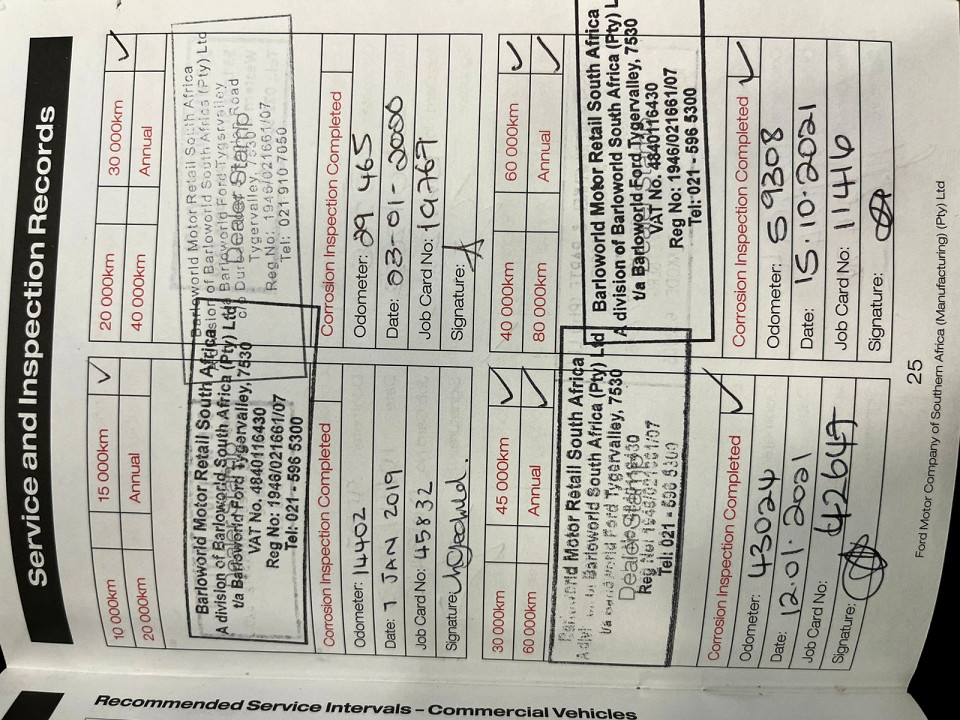 Service and Inspection Records
10 000km 15 000km ✓
20 000km Annual
Barloworld Motor Retail South Africa
A division of Barloworld South Africa (Pty) Ltd
t/a Barloworld Ford Tygervalley, 7530
VAT No. 4840116430
Reg No: 1946/021661/07
Tel: 021 - 596 5300
Corrosion Inspection Completed
Odometer: 14402
Date: 7 JAN 2019
Job Card No: 45832
Signature:
20 000km 30 000km ✓
40 000km Annual
Barloworld Motor Retail South Africa
A division of Barloworld South Africa (Pty) Ltd
t/a Barloworld Ford Tygervalley
Dealer Stamp
c/o Durban Road
Tygervalley, 7530
Reg No: 1946/021661/07
Tel: 021 910 7050
Corrosion Inspection Completed
Odometer: 29 465
Date: 03-01-2000
Job Card No: 19767
Signature:
30 000km 45 000km ✓
60 000km Annual ✓
Barloworld Motor Retail South Africa
A division of Barloworld South Africa (Pty) Ltd
t/a Barloworld Ford Tygervalley, 7530
Dealer Stamp
Reg No: 1946/021661/07
Tel: 021 - 596 5300
Corrosion Inspection Completed ✓
Odometer: 43024
Date: 12.01.2021
Job Card No: 42647
Signature:
40 000km 60 000km ✓
80 000km Annual ✓
Barloworld Motor Retail South Africa
A division of Barloworld South Africa (Pty) L
t/a Barloworld Ford Tygervalley, 7530
VAT No. 4840116430
Reg No: 1946/021661/07
Tel: 021 - 596 5300
Corrosion Inspection Completed ✓
Odometer: 59308
Date: 15.10.2021
Job Card No: 11416
Signature:
25
Ford Motor Company of Southern Africa (Manufacturing) (Pty) Ltd
Recommended Service Intervals – Commercial Vehicles